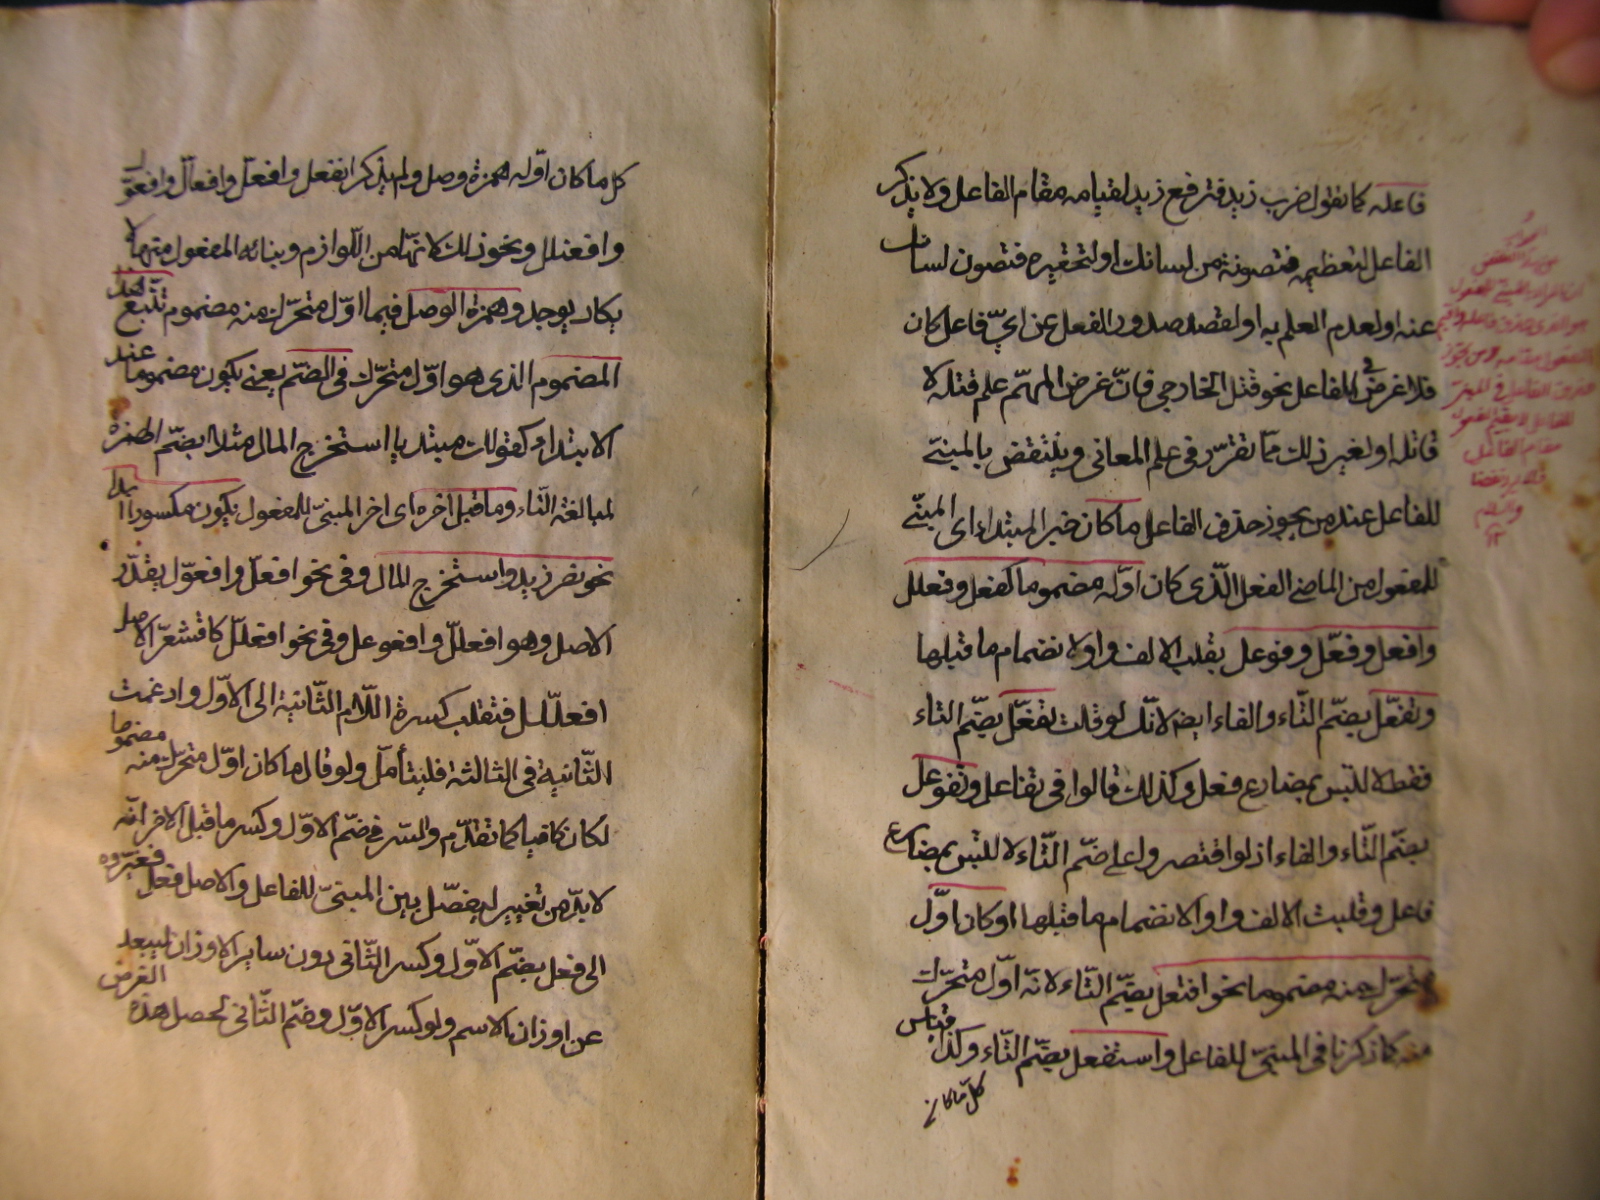 فاعله كما تقول ضرب زيد فترفع زيد لقيامه مقام الفاعل ولا يذكر
الفاعل لتعظيمه فتصونه من لسانك او لتحقيره فتصون لسانك
عنه او لعدم العلم به او لقصد صدور الفعل عن ايّ فاعل كان
فلا غرض في الفاعل نحو قتل الخارجي فانّ غرض المهمّ علم قتله لا
قاتله او لغير ذلك ممّا تقرّر في علم المعاني وينتقض بالمبنيّ
للفاعل عند من يجوز حذف الفاعل ما كان خبر المبتداء اى المبنيّ
للمفعول من الماضي الفعل الّذى كان اوّله مضموما كفعل وفعلل
وافعل وفعّل وفوعل بقلب الالف واوا لانضمام ما قبلها
وتفعّل بضمّ التّاء والفاء ايض لانّك لو قلت تفعّل بضمّ التاء
فقط لالتبس بمضارع فعل وكذلك قالوا في تفاعل وتفوعل
بضمّ التّاء والفاء اذ لو اقتصروا على ضمّ التّاء لالتبس بمضارع
فاعل وقلبت الالف واوا لانضمام ما قبلها او كان اوّل
متحرّك منه مضموما نحو افتعل بضمّ التّاء لانّه اوّل متحرّك
منه كما ذكرنا في المبنيّ للفاعل واستفعل بضمّ التّاء وكذا قياس
كلّ ما كان
كل ما كان اوّله همزة وصل ولم يذكر انفعل وافعلّ وافعالّ وافعوّل
وافعنلل ونحو ذلك لانّها من اللّوازم وبنائه المفعول منها لا
يكاد يوجد وهمزة الوصل فيما اوّل متحرّك منه مضموم تتّبع هذا
المضموم الذى هو اوّل متحرّك في الضّم يعني يكون مضموما عند
الابتداء كقولك مبتديا استخرج المال مثلا بضمّ الهمزة
لمبالغة التّاء وما قبل اخره اى اخر المبنيّ للمفعول يكون مكسورا ابدا
نحو نصر زيد واستخرج المال وفي نحو افعلّ وافعوّل يقدّر
الاصل وهو افعلل وافعوعل وفي نحو افعللّ كاقشعرّ الاصل
افعلّلل فتقلب كسرة اللّام الثّانية الى الاوّل وادغمت
الثّانية في الثالثة فليتأمل ولو قال ما كان اوّل متحرّك منه مضموما
لكان كافيا كما تقدّم والسّر في ضمّ الاوّل وكسر ما قبل الاخر انّه
لا بدّ من تغيير ليفصّل بين المبنيّ للفاعل والاصل فعل فغيّروه
الى فعل بضمّ الاوّل وكسر الثّاني دون ساير الاوزان ليبعد
عن اوزان الاسم ولو كسر الاوّل وضمّ الثّاني لحصل هذه الغرض